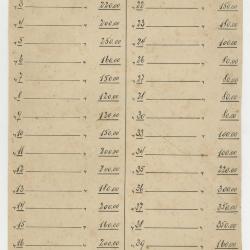 „ 3 „ 220.00
„ 4 „ 200.00
„ 5 „ 250.00
„ 6 „ 160.00
„ 7 „ 150.00
„ 8 „ 120.00
„ 9 „ 130.00
„ 10 „ 150.00
„ 11 „ 200.00
„ 12 „ 200.00
„ 13 „ 180.00
„ 14 „ 200.00
„ 15 „ 160.00
„ 16 „ 200.00
„ 22 „ 150.00
„ 23 „ 110.00
„ 24 „ 100.00
„ 26 „ 80.00
„ 27 „ 80.00
„ 28 „ 80.00
„ 30 „ 80.00
„ 33 „ 100.00
„ 34 „ 100.00
„ 35 „ 300.00
„ 36 „ 220.00
„ 37 „ 350.00
„ 38 „ 350.00
„ 39 „ 160.00